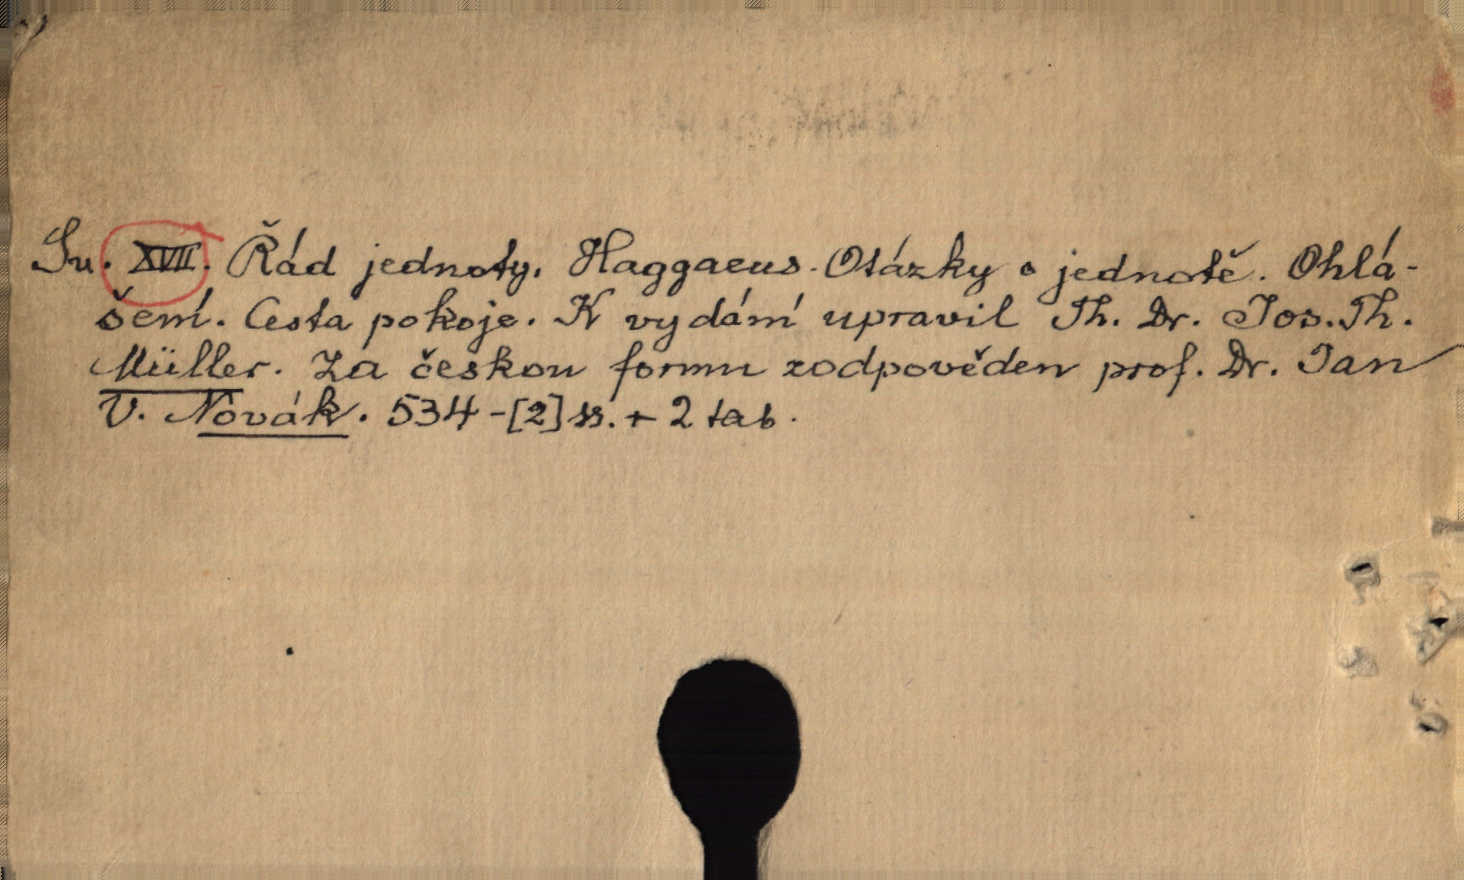 Sv. XVII. Řád jednoty. Haggaeus. Otázky o jednotě. Ohlá-
šení. Cesta pokoje. K vydání upravil Th. Dr. Jos. Th.
Müller. Za českou formu zodpověden prof. Dr. Jan
V. Novák. 534-[2] ss. + 2 tab.